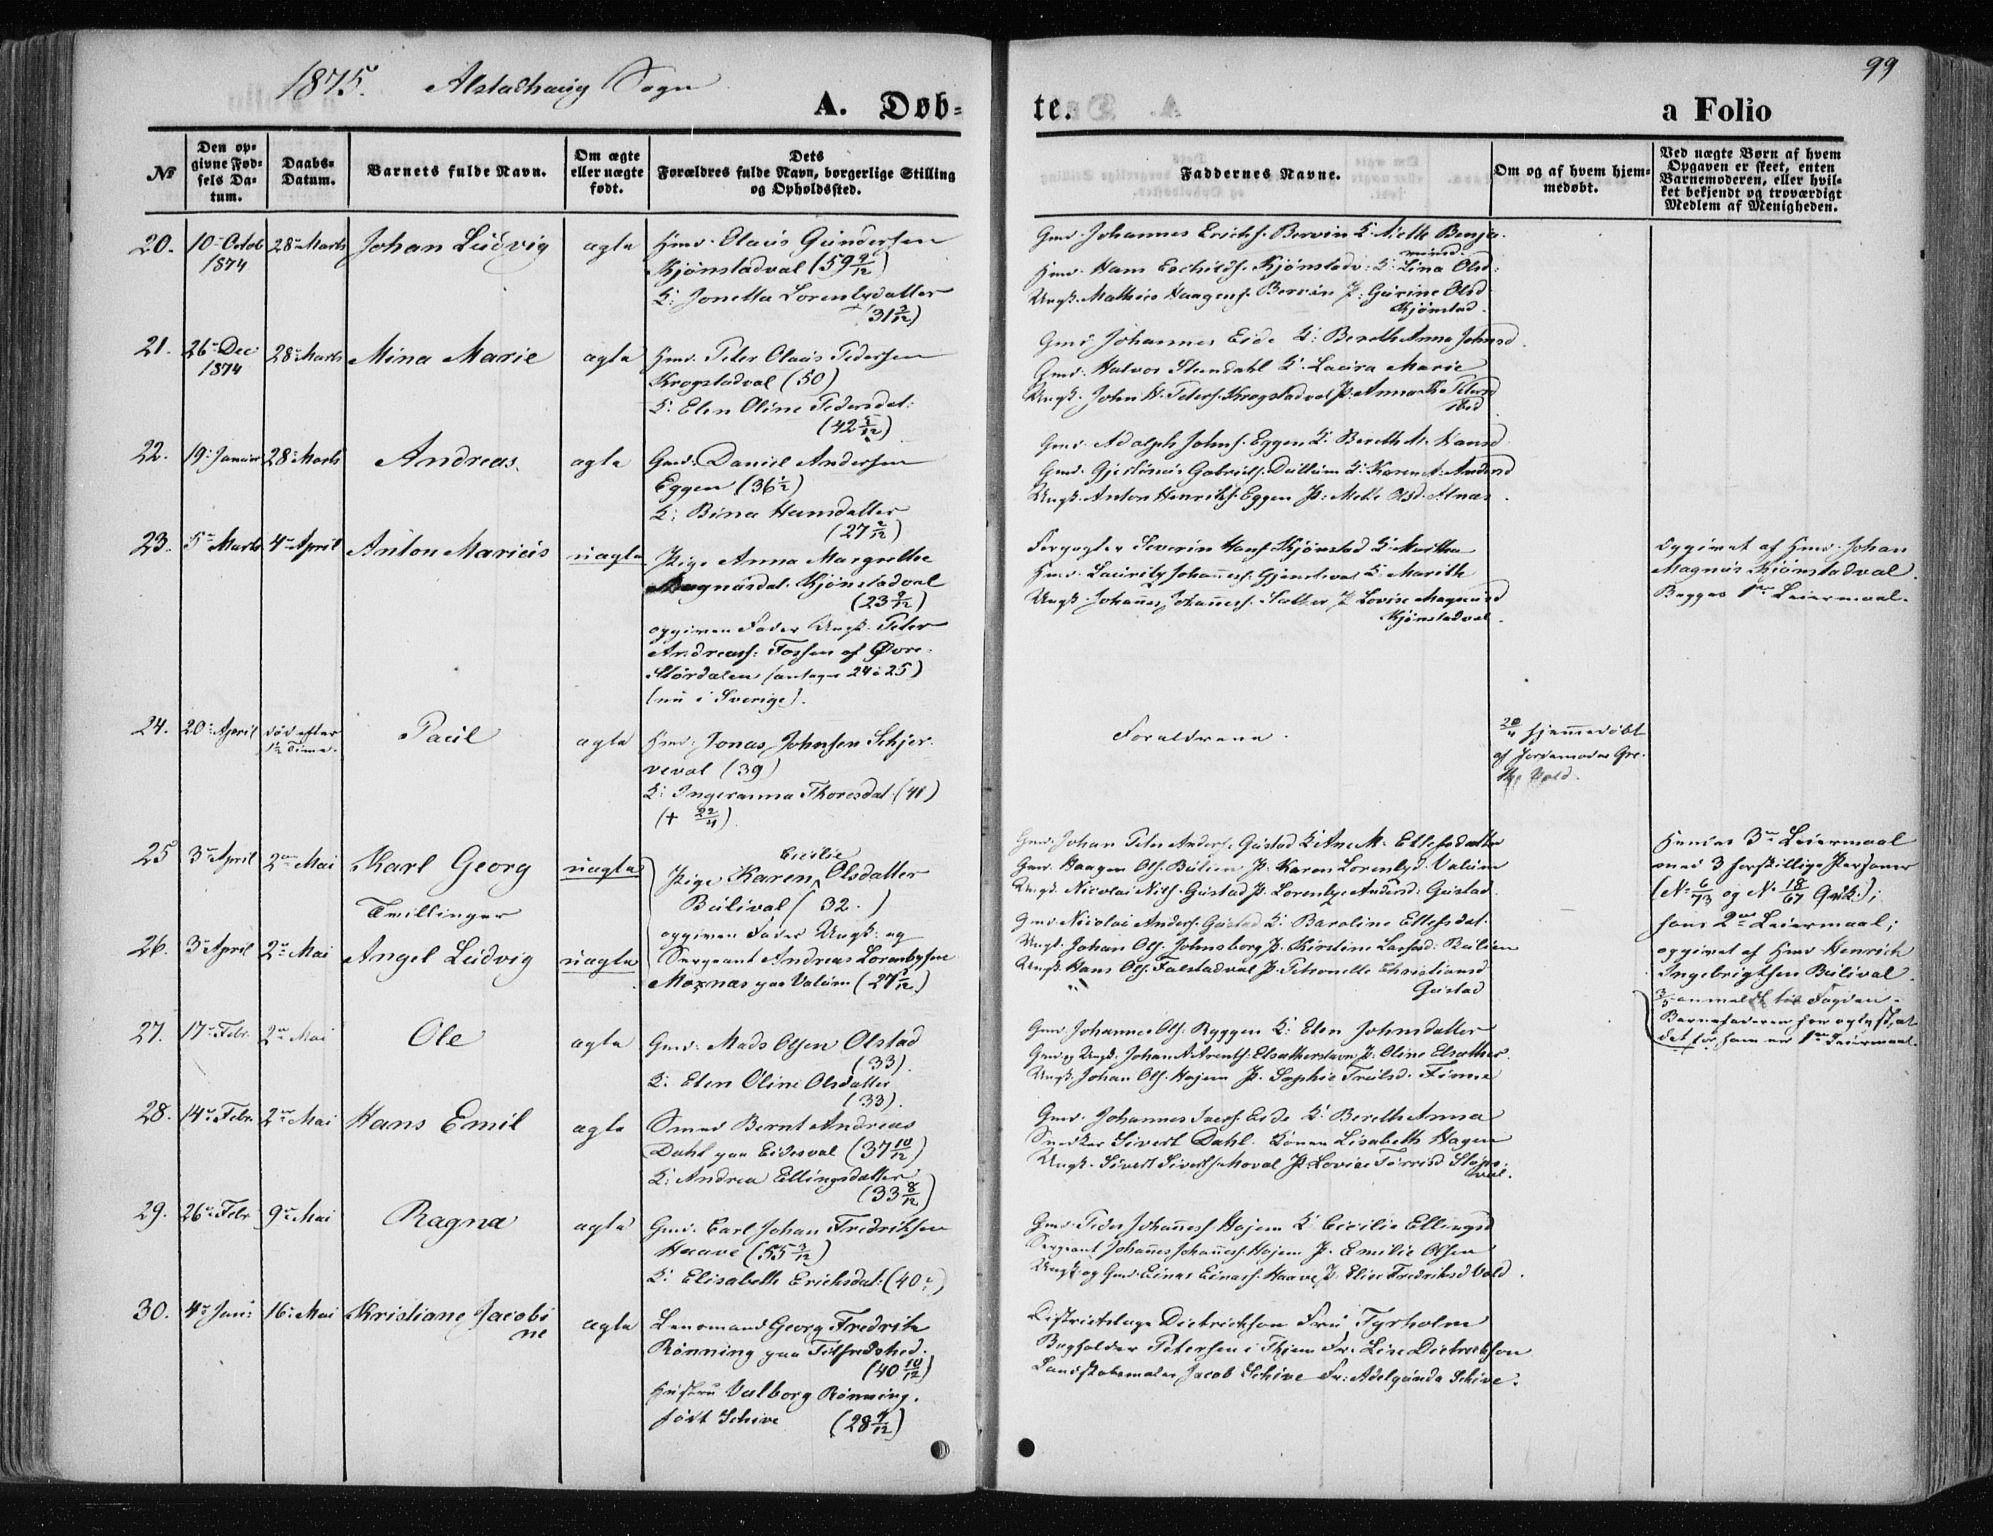 1875. Alstadhaug Sogn
A. Døb-
te.
a Folio
99
№
Den op-
givne Fød-
sels Da-
tum.
Daabs-
Datum.
Barnets fulde Navn.
Om ægte
eller uægte
født.
Dets
Forældres fulde Navn, borgerlige Stilling
og Opholdssted.
Faddernes Navne.
Om og af hvem hjem-
medøbt.
Ved uægte Børn af hvem
Opgaven er skeet, enten
Barnemoderen, eller hvil-
ket bekjendt og troværdigt
Medlem af Menigheden.
20. 10 Octob 1874 28 Marts Johan Ludvig ægte
Hmd. Elaus Gundersen
Kjønstadval (59 9/12)
K: Jonetta Lorentzdatter
(31 3/12)
Gmd. Johannes Erichs. Borvin K. Meth Benja-
minsd.
Hmd. Hans Kjønstadv: K. Lina Olsd.
Ungk. Mathias Haagens. Bervin P. Gurine Olsd
Kjønstad.
21. 26 Dec 1874 28 Marts Mina Marie ægte
Hmd. Peter Olaus Pedersen
Krogstadval (50)
K. Elen Oline Pedersdat:
(42 5/12)
Gmd Johannes Eide K: Bereth Anna Johnsd.
Gmd. Halvor Stendahl K. Laura Marie
Ungk. John P. Peters. Krogstadval P. Anna
22. 19 Januar 28 Marts Andreas. ægte
Gmd. Daniel Andersen
Eggen (36 1/2)
K: Bina Hansdatter
(27 2/12)
Gmd. Adolph Johns. Eggen K. Bereth M. Hansd
Gmd. Gjertinus Gabriels. Dullum K. Karen A. Andersd
Ungk. Anton Henriks. Eggen P: Mette Olsd. Alnas.
23. 5 Marts 4 April Anton Marius uægte
Pige Anna Margrethe
Magnusdat. Kjønstadval
(23 9/12)
opgiven Fader Ungk. Peter
Andreass. Fossen af Øvre
Størdalen (antages 24 à 25)
(nu i Sverige).
Forpagter Severin Hans. Kjønstad K. Martha
Hmd. Lauritz Johannes. Gjenstval K. Marith
Ungk. Johannes Johannes. Salter P. Lovise Magnusd
Kjønstadval.
Opgivet af Hmd. Johan
Magnus Kjønstadval.
Begges 1ste Leiermaal.
24. 20 April død efter
1½ Time. Paul ægte
Hmd: Jonas Johnsen Skjer-
veval (39)
K: Ingeranna Thoresdat. (41)
(+ 22/4)
Forældrene.
20/4 hjemmedøbt
af Jordemoder Gre-
the Vold.
25 3 April 2den Mai Karl Georg uægte
Tvillinger
26. 3 April 2den Mai Angel Ludvig uægte
Cecilie
Pige Karen Olsdatter
Bulival (32.)
opgiven Fader Ungk: og
Sergeant Andreas Lorentzsen
Moxnas paa Valum (27 5/12)
Gmd. Johan Peter Anders. Gustad K. Ane M. Ellefsdatter
Gmd. Haagen Ols. Bulien P. Karen Lorentzd. Valum
Ungk. Nicolai Nils. Gustad P. Lorentze Andersd. Gustad
Gmd Nicolai Anders. Gustad K. Baroline Ellefsdat.
Ungk. Johan Ols. Johnsborg P. Kirstine Larsd. Bulien
Ungk Hans Ols. Falstadval P. Petronelle Christiansd
Gustad
Hendes 3die Leiermaal
med 3 forskillige Personer
(No 6/73 og No 18/67 );
hans 2det Leiermaal;
opgivet af Hmd Henrich
Ingebrigtsen Bulival.
3/5 anmeldt til Fogden.
Barnefaderen har oplyst, at
det for ham er 1ste Leiermaal.
27. 17 Febr. 2den Mai Ole ægte
Gmd. Mads Olsen Olstad
(33).
K: Elen Oline Olsdatter
(33).
Gmd. Johannes Ols. Ryggen K: Elen Johnsdatter
Gmd og Ungk. Johan A. Arents. P: Oline Elsather.
Ungk. Johan Ols. Hojem P. Sophie Finne
28. 14 Febr. 2den Mai Hans Emil ægte
Smed Bernt Andreas
Dahl paa Eidesval (37 10/12)
K: Andrea Ellingsdatter
(33 8/12)
Gmd. Johannes Ivers. Eide K. Bereth Anna
Snedker Sivert Dahl. Konen Lisabeth Hagen
Ungk. Sivert Siverts. Moval P. Lovise
29. 26 Febr 9 Mai Ragna ægte
Gmd. Carl Johan Fredriksen
Haave (55 3/12)
K. Elisabeth Erichsdat. (40)
Gmd. Peder Johannes. Hojem K Cecilie Ellingsd
Sergeant Johannes Johannes. Hojem P. Emilie Olsen
Ungk og Gmd. Einar Einars. Haave P. Elise Fredriksd Vold.
30. 4 Jan: 16 Mai Kristiane Jacobi-
ne ægte
Lensmand Georg Fredrik
Rønning paa Tilfredshed.
(40 10/12)
Hustru Valborg Rønning.
født Schive (28 9/12)
Districtslæge Dietrichson Fru Tyrholm
Bogholder Petersen i Thjem Fr. Lise Dietrichson
Landskabsmaler Jacob Schive Fr: Adelgunde Schive.